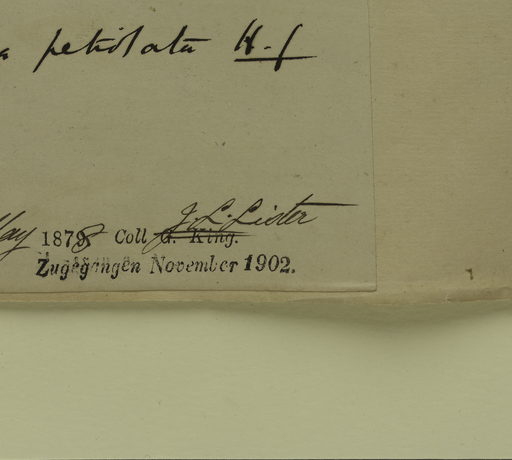 petiolata H.f
May 1878 Coll G. King. J. L. Lister
Zugegangen November 1902.